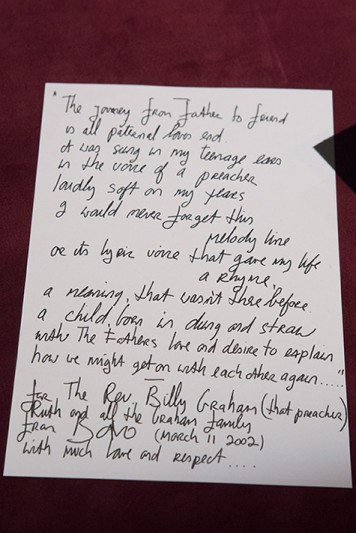 " The journey from Father to friend
is all paternal loves end
it was sung in my teenage ears
in the voice of a preacher
loudly soft on my tears
I would never forget this
melody line
or its lyric voice that gave my life
a rhyme,
a meaning, that wasn't there before.
a child, born in dung and straw
with The Fathers love and desire to explain
how we might get on with each other again....."
for The Rev. Billy Graham (that preacher)
Ruth and all the Graham family
from BONO (March 11 2002)
with much love and respect....